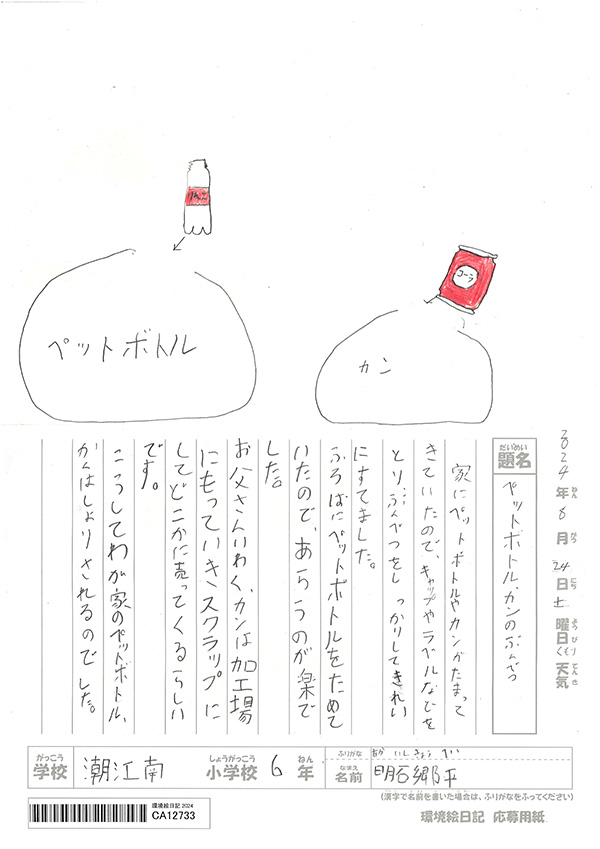 りんご
コーラ
ペットボトル
カン
2024年8月24日土曜日くもり天気
ねん がつ にち ようび てんき
だいめい
題名
ペットボトル、カンのぶんべつ
家にペットボトルやカンがたまって
きていたので、キャップやラベルなどを
とりぶんべつをしっかりしてきれい
にすてました。
ふろばにペットボトルをためて
いたので、あらうのが楽で
した。
お父さんいわく、カンは加工場
にもっていきスクラップに
してどこかに売ってくるらしい
です。
こうしてわが家のペットボトル、
かんはしょりされるのでした。
がっこう しょうがっこう ねん
学校 潮江南 小学校 6年
ふりがな あかいしきょうへい
なまえ
名前 明石郷平
(漢字で名前を書いた場合は、ふりがなをふってください)
環境絵日記 2024
CA12733
環境絵日記 応募用紙